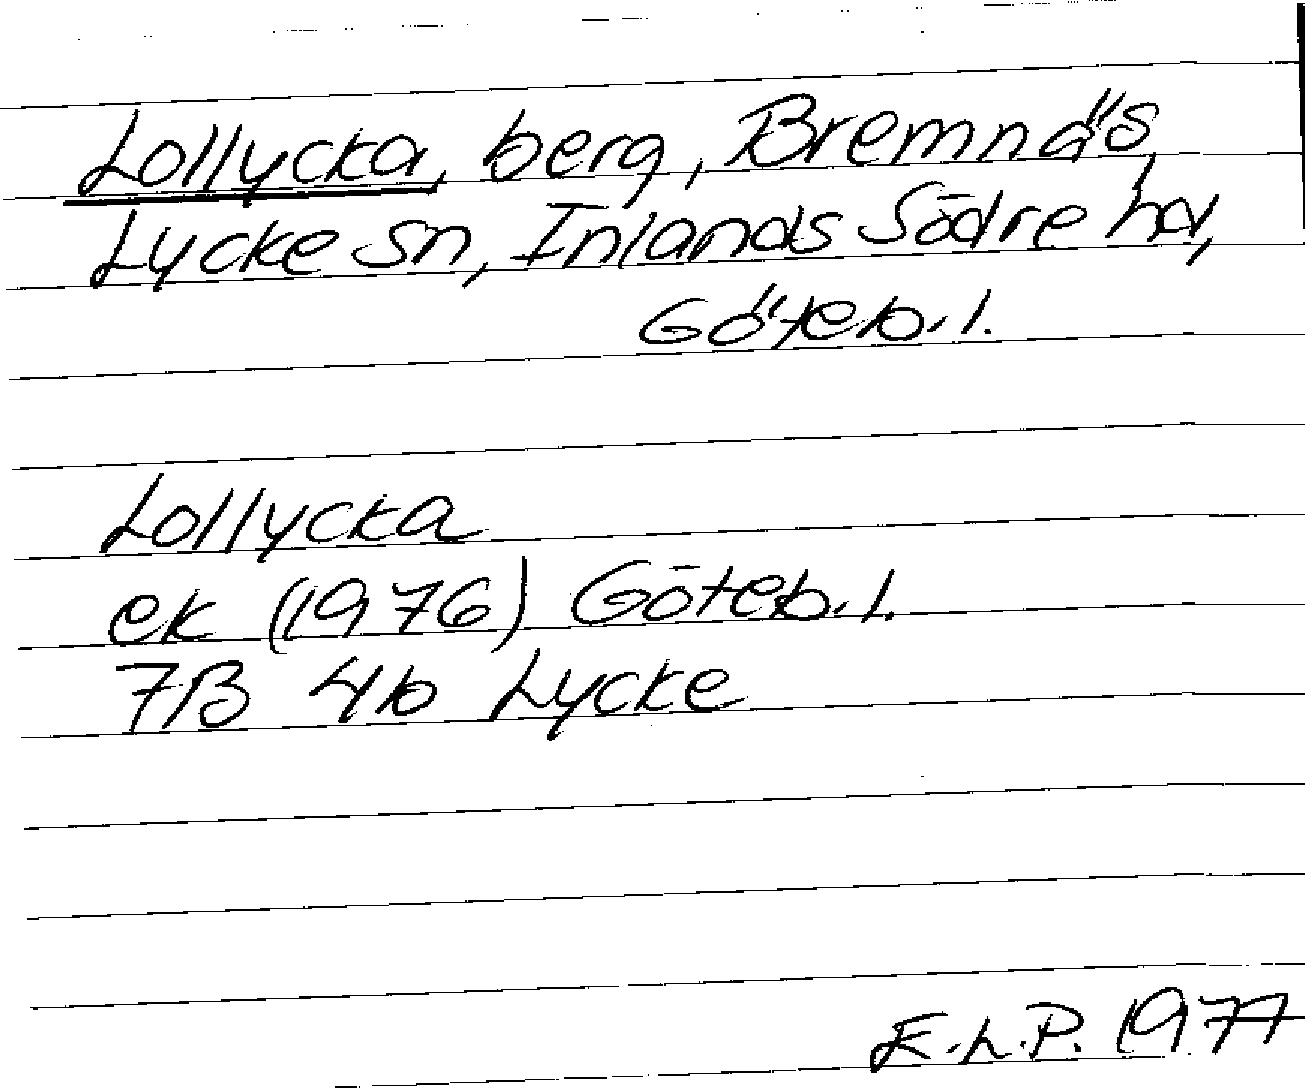 Lollycka, berg, Bremnäs,
Lycke sn, Inlands Södre hd,
Göteb. l.
Lollycka
ek (1976) Göteb. l.
7B 4b Lycke
E.L.P. 1977